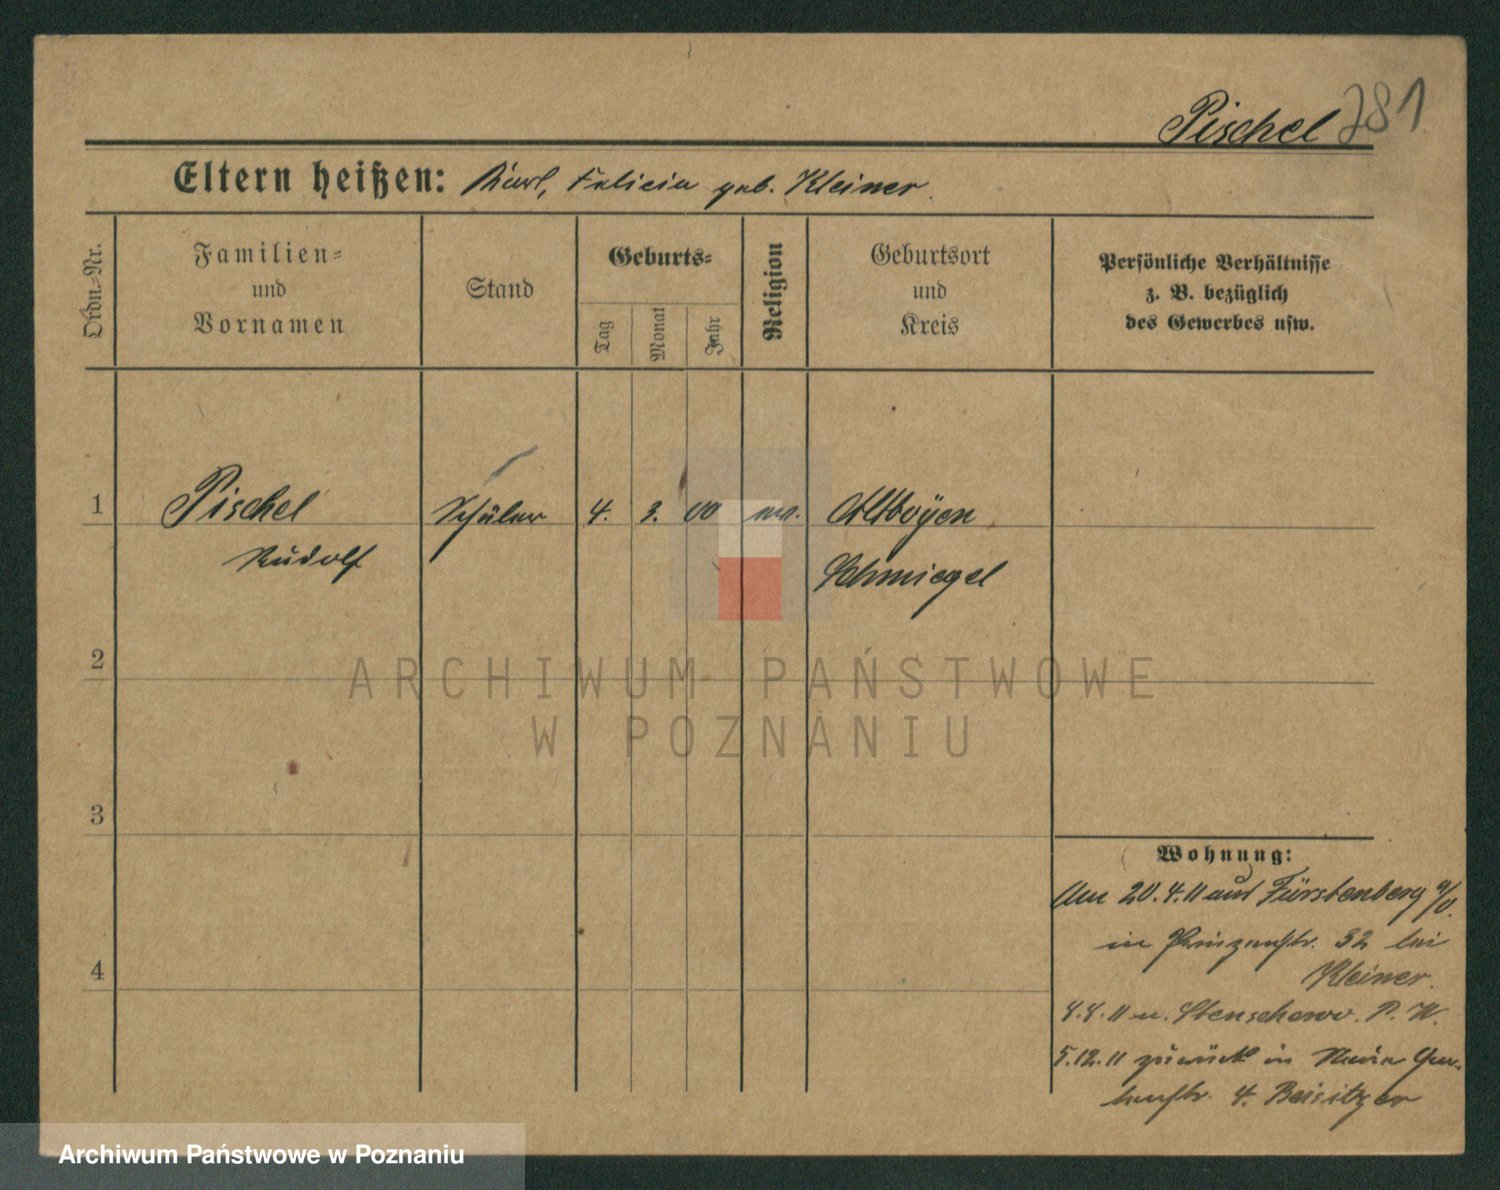 Pischel 281
Eltern heißen: Karl, Felicia geb. Kleiner.
Ordn.-Nr.
Familien-
und
Vornamen
Stand
Geburts-
Tag
Monat
Jahr
Religion
Geburtsort
und
Kreis
Persönliche Verhältnisse
z. B. bezüglich
des Gewerbes usw.
1 Pischel Schüler 4. 3. 00 ev. Altboyen
Rudolf Schmiegel
2
ARCHIWUM PAŃSTWOWE
W POZNANIU
3
4
Wohnung:
Am 20.4.11 aus Fürstenberg a/O.
in Prinzenstr. 32 bei
Kleiner.
4.4.11 n. Stenschewo. P. W.
5.12.11 zurück in Neue
4. Beisitzer
Archiwum Państwowe w Poznaniu